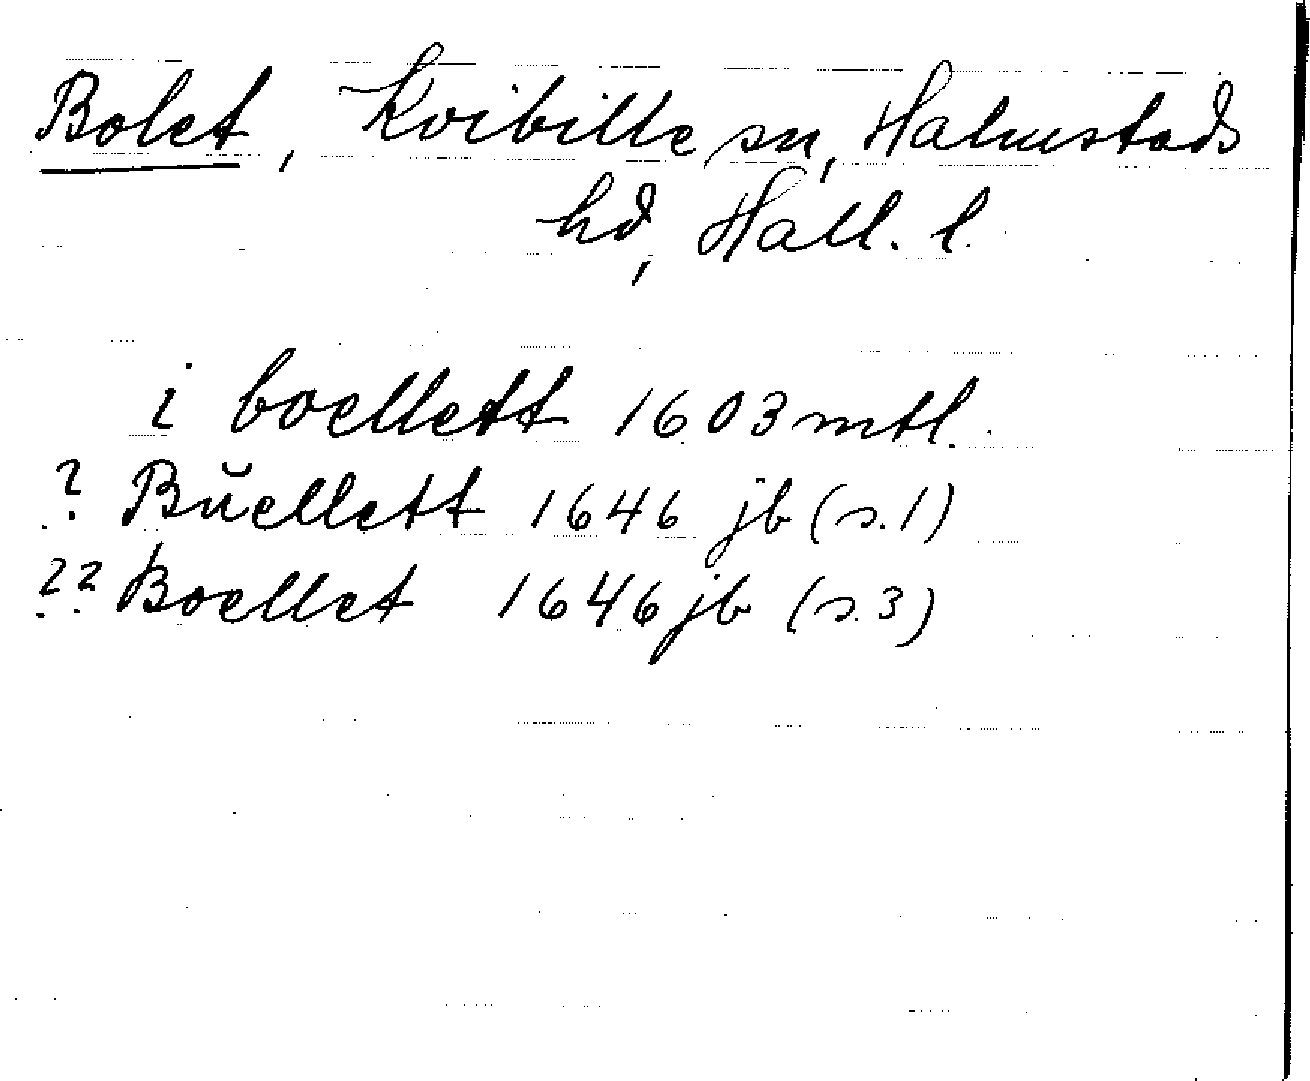 Bolet, Kvibille sn, Halmstads
hd, Hall. l.
i boellett 1603 mtl.
? Bŭellett 1646 jb (s. 1)
?? Boellet 1646 jb (s. 3)